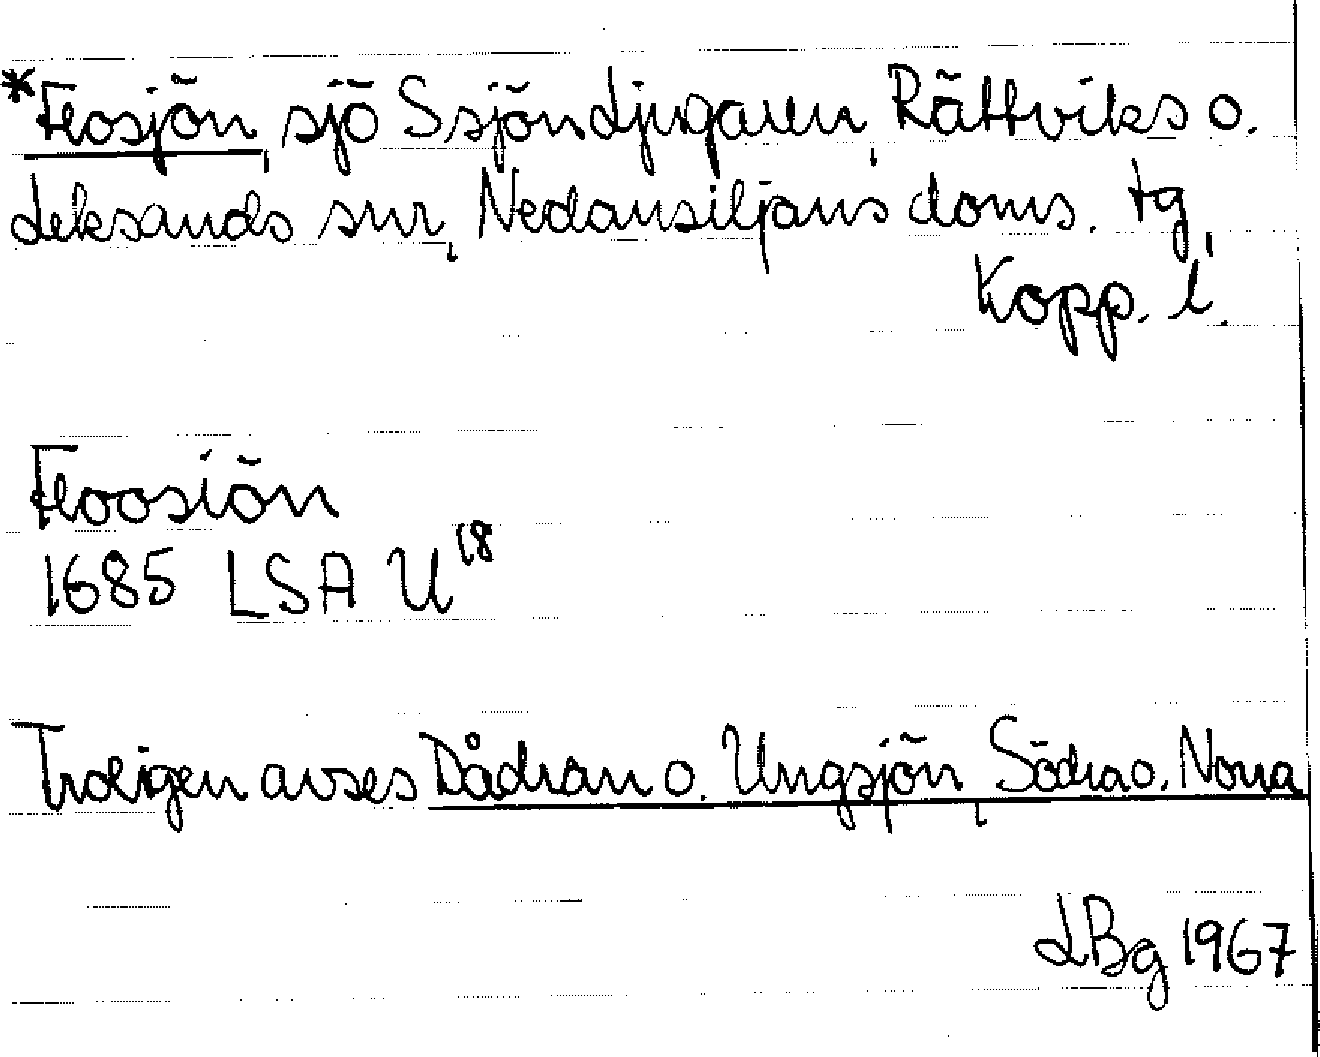 *Flosjön, sjö S sjön Ljugaren, Rättviks o.
Leksands snr, Nedansiljans doms. tg,
Kopp. l.
Floosiön
1685 LSA U¹⁸
Troligen avses Dådran o. Ungsjön, Södra o. Norra
LBg 1967